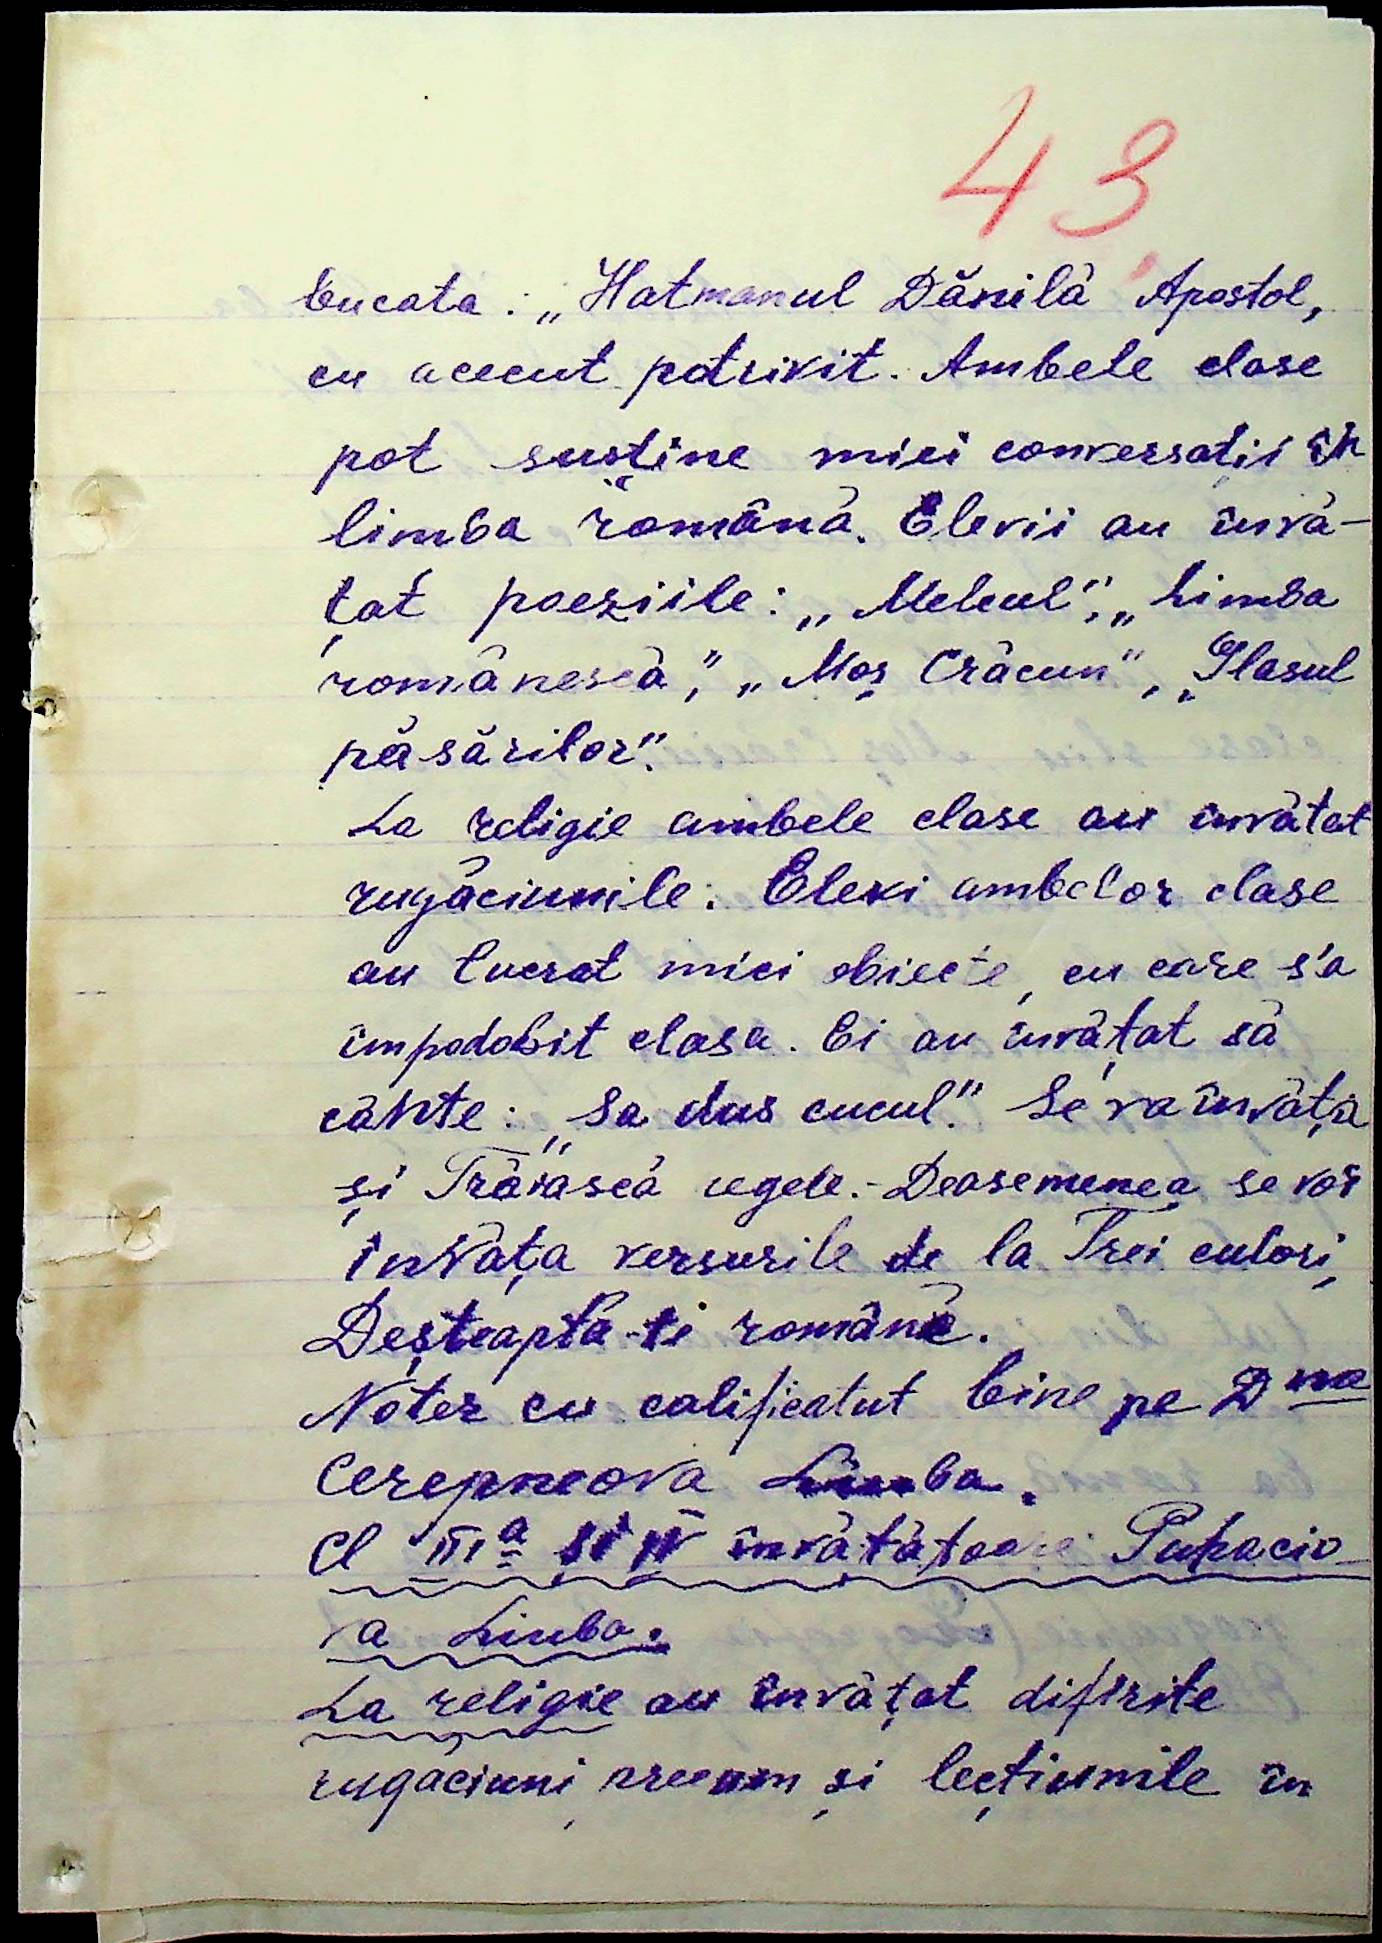 43
bucata: „Hatmanul Dănilă Apostol,
cu accent potrivit. Ambele clase
pot susține mici conversații în
limba română. Elevii au învă-
țat poeziile: „Melcul", „Limba
românescă", „Moș Crăcun", „Glasul
păsărilor".
La religie ambele clase au învățat
rugăciunile. Elevi ambelor clase
au lucrat mici obiecte, cu care s'a
împodobit clasa. Ei au învățat să
cânte: „Sa dus cucul." Se va învăța
și Trăiască regele.- Deasemenea se vor
învăța versurile de la Trei culori,
Deșteaptă-te române.
Notez cu calificatut bine pe Dna
Cerepneova Liuba.
Cl IIIa și IV învățătoare: Puhacio
va Liuba.
La religie au învățat difirite
rugăciuni, precum și lecțiunile în